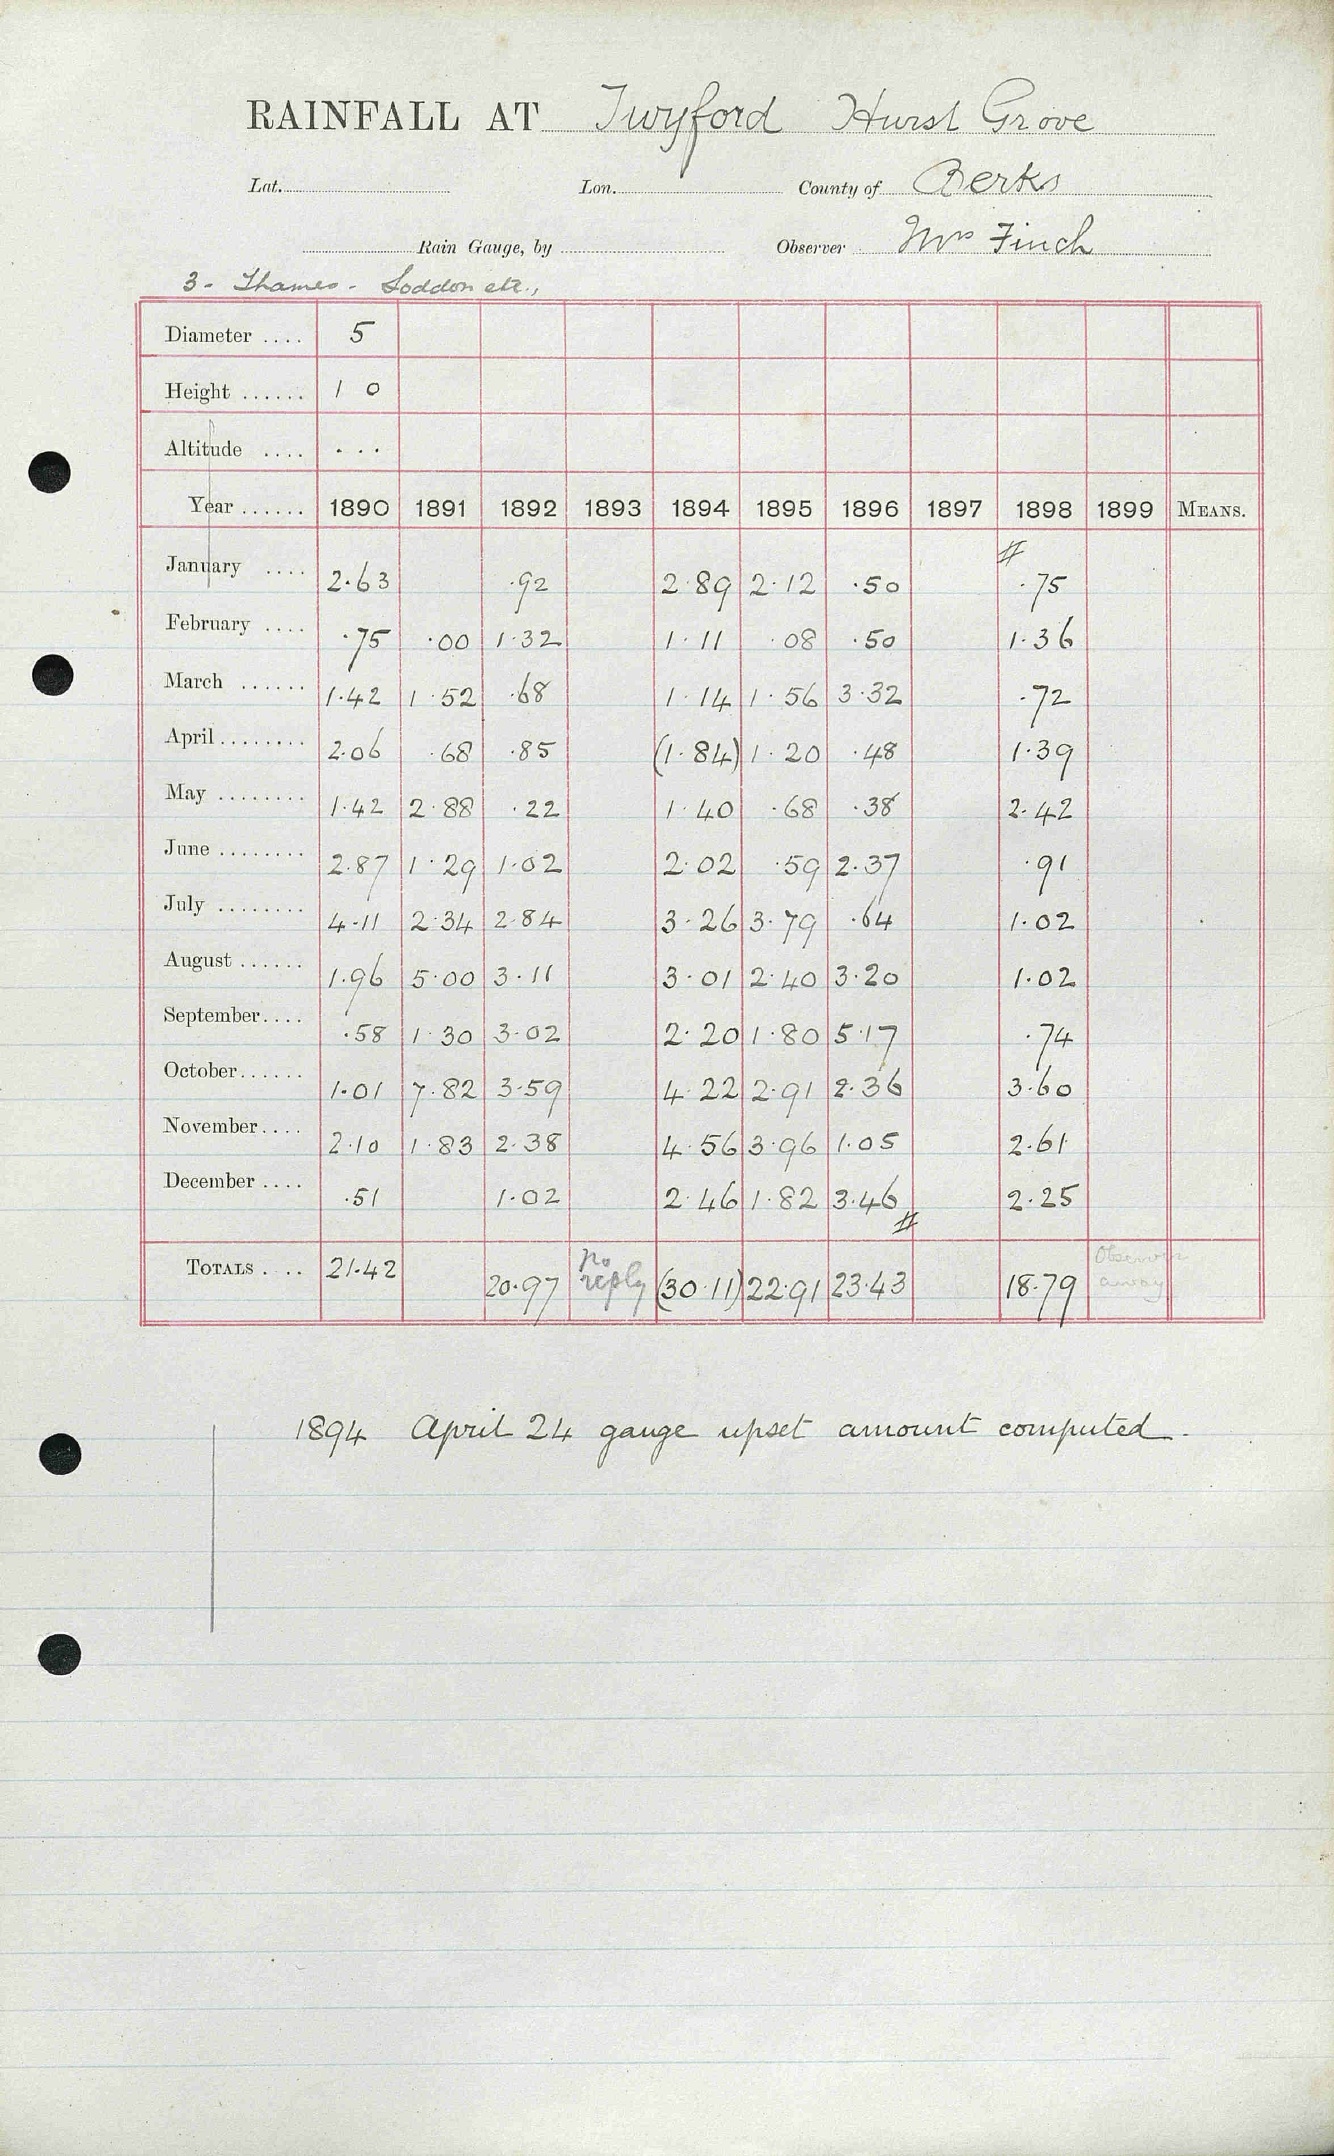 RAINFALL AT Twyford Hurst Grove
Lat. Lon. County of Berks
Rain Gauge, by Observer Mrs Finch
3 - Thames - Loddon etc.,
Diameter .... 5
Height ...... 1 0
Altitude .... . . .
Year ...... 1890 1891 1892 1893 1894 1895 1896 1897 1898 1899 MEANS.
#
January .... 2.63 .92 2.89 2.12 .50 .75
February .... .75 .00 1.32 1.11 .08 .50 1.36
March ...... 1.42 1.52 .68 1.14 1.56 3.32 .72
April ........ 2.06 .68 .85 (1.84) 1.20 .48 1.39
May ........ 1.42 2.88 .22 1.40 .68 .38 2.42
June ........ 2.87 1.29 1.02 2.02 .59 2.37 .91
July ........ 4.11 2.34 2.84 3.26 3.79 .64 1.02
August ...... 1.96 5.00 3.11 3.01 2.40 3.20 1.02
September.... .58 1.30 3.02 2.20 1.80 5.17 .74
October...... 1.01 7.82 3.59 4.22 2.91 2.36 3.60
November.... 2.10 1.83 2.38 4.56 3.96 1.05 2.61
December .... .51 1.02 2.46 1.82 3.46 2.25
#
TOTALS .... 21.42 20.97 No reply (30.11) 22.91 23.43 18.79 Observer away
1894 April 24 gauge upset amount computed.